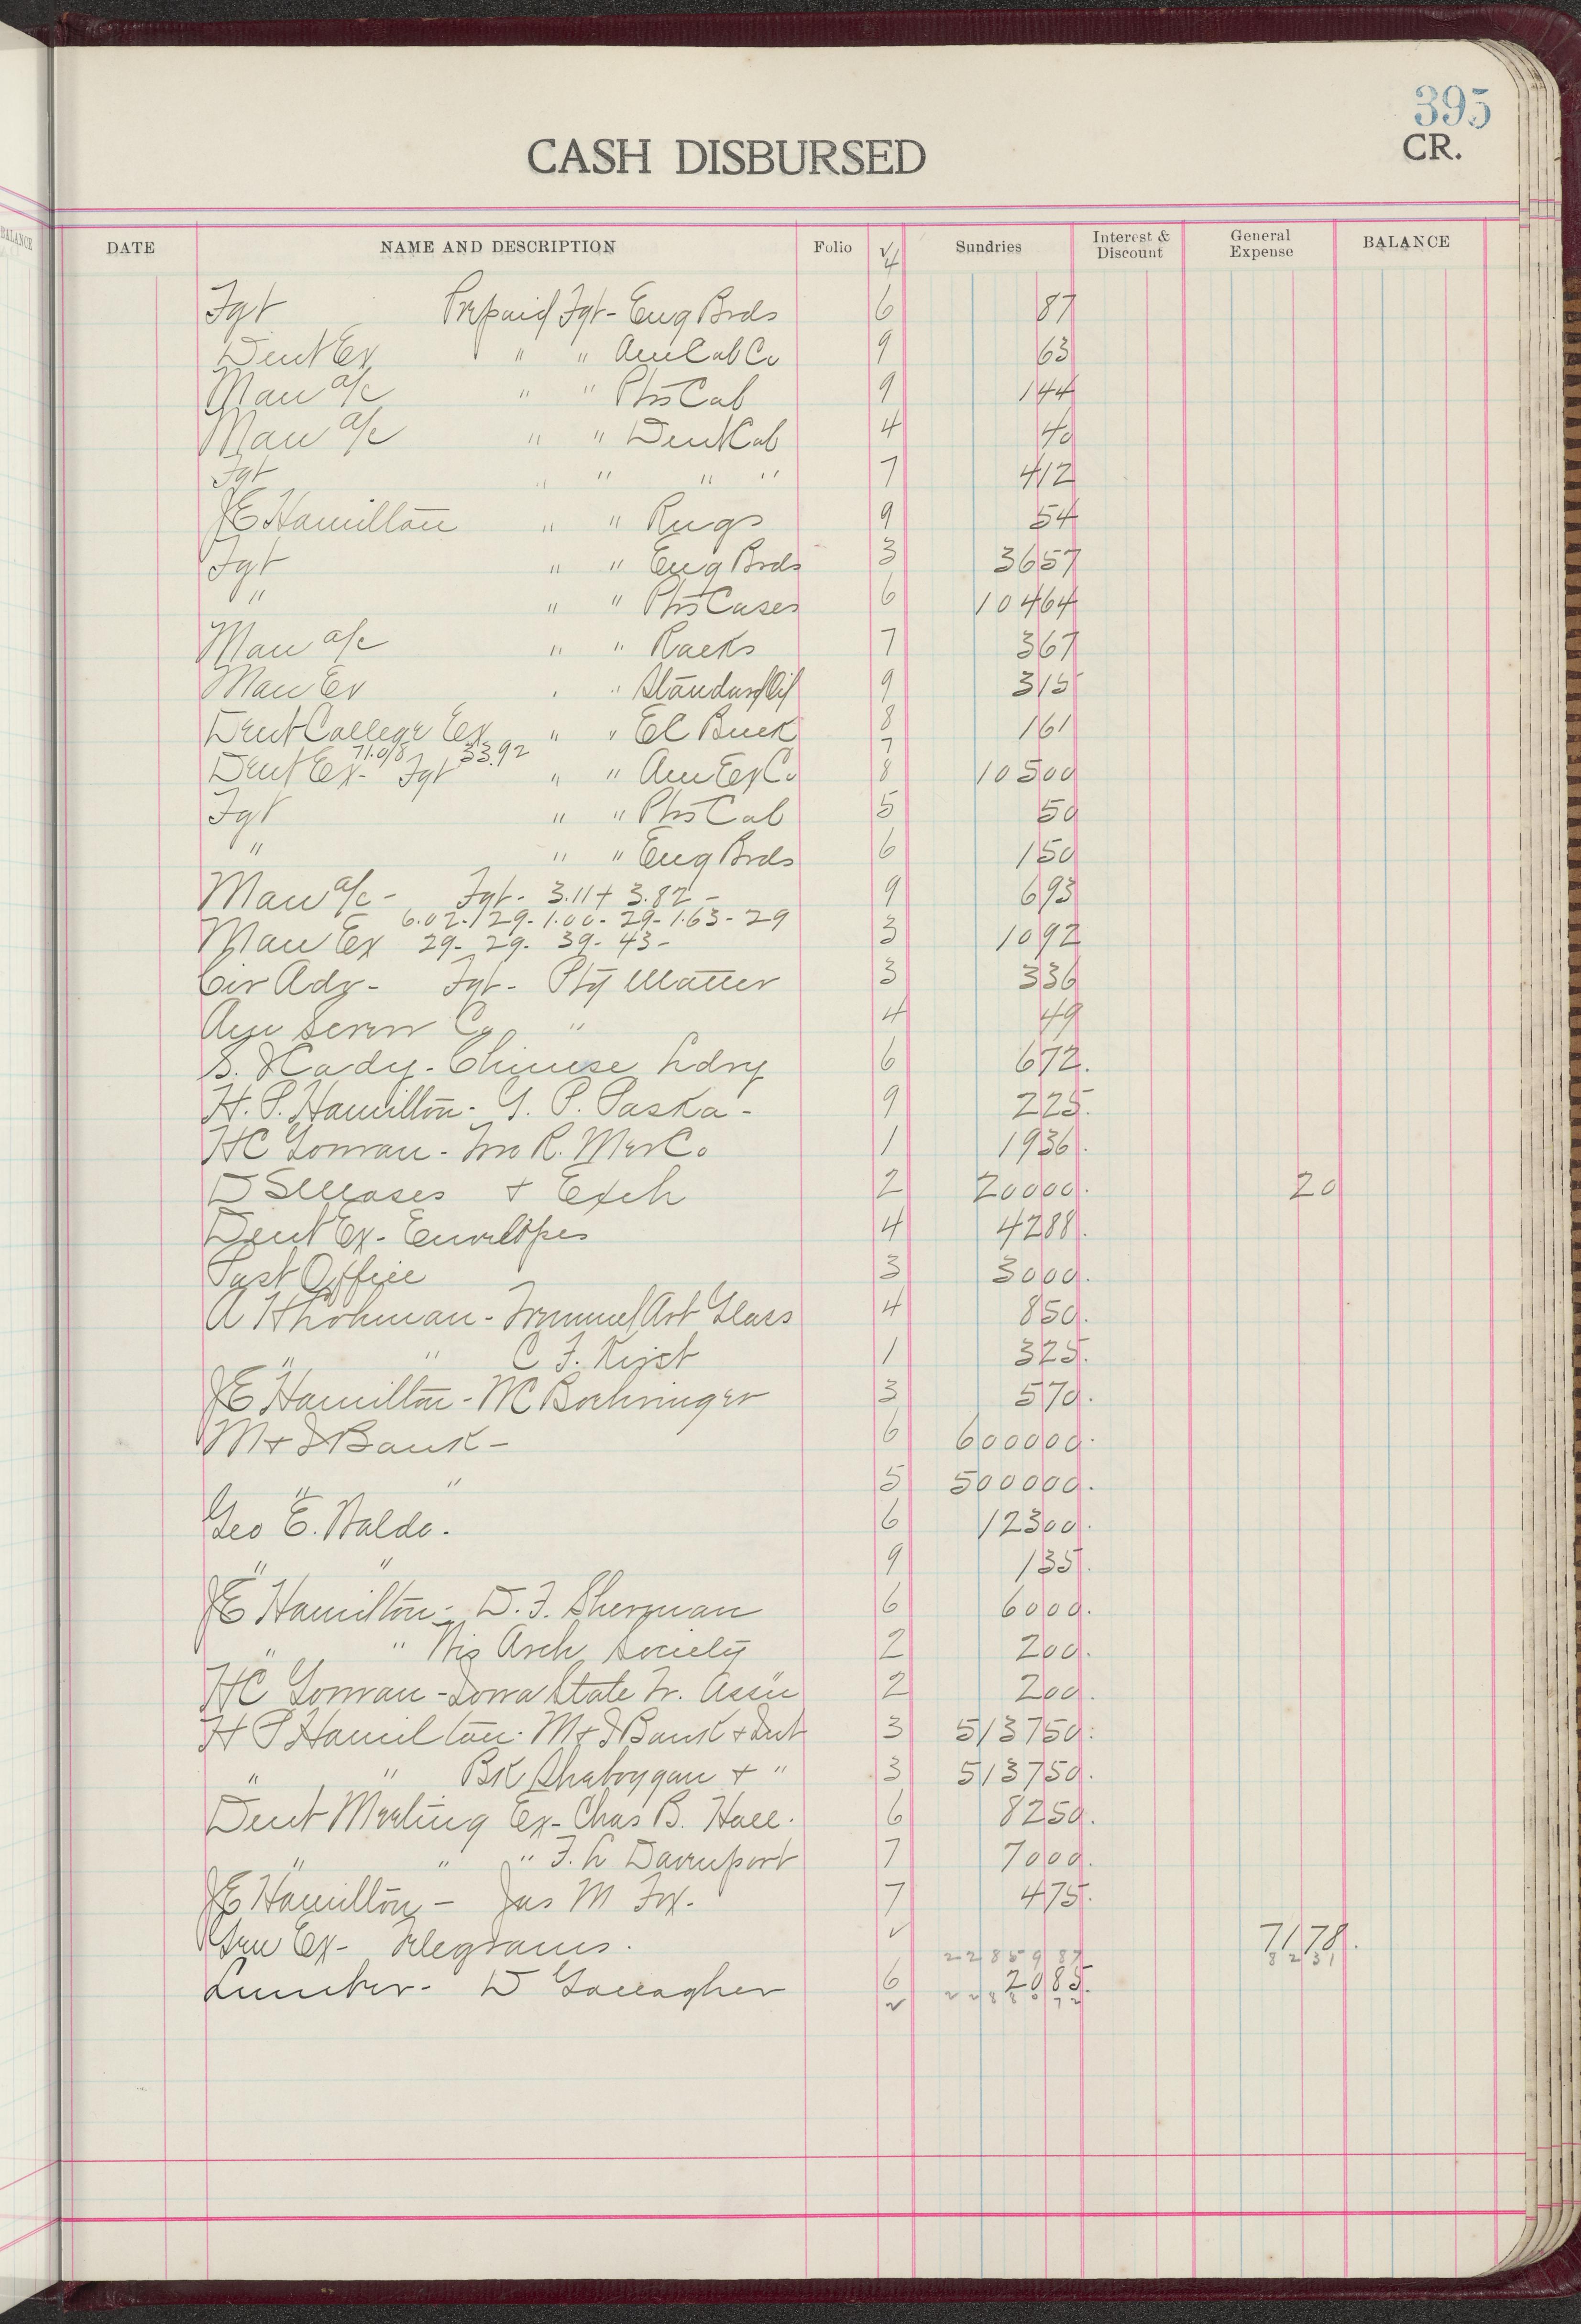 395
CR.
CASH DISBURSED
BALANCE
DATE NAME AND DESCRIPTION Folio √ Sundries Interest & Discount General Expense BALANCE
4
Fgt Prepaid Fgt - Eng Brds 6 87
Dent Ex " " Am Cab Co 9 63
Man a/c " " Phs Cab 9 144
Man a/c " " Dent Cab 4 40
Fgt " " " " 7 412
JE Hamilton " " Rugs 9 54
Fgt " " Eng Brds 3 3657
" " " Phs Cases 6 10464
Man a/c " " Racks 7 367
Man Ex " " Standard Oil 9 315
Dent College Ex " " El Buck 8 161
71.08 33.92 7
Dent Ex - Fgt " " Am Ex Co 8 10500
Fgt " " Phs Cab 5 50
" " " Eng Brds 6 150
Man a/c - Fgt - 3.11 + 3.82 - 9 693
6.02 - 129 - 1.00 - 29 - 1.63 - 29
Man Ex 29 - 29 - 39 - 43 - 3 1092
Cir Adv - Fgt - Ptg Matter 3 336
Screw Co " 4 49
S. J Cady - Chinese Ldry 6 672.
H. P. Hamilton - G. P. Paska - 9 225.
HC Gorman - R. Mer Co 1 1936.
& Exch 2 20000. 20
Dent Ex - Envelopes 4 4288.
Post Office 3 3000.
A H Lohman - Art Glass 4 850.
" " C F. Kirst 1 325.
JE Hamilton - WC Boehringer 3 570.
M & I Bank - 6 600000.
" " 5 500000.
Geo E. Waldo. 6 12300.
" " 9 135.
JE Hamilton - D. F. Sherman 6 6000.
" " Wis Arch Society 2 200.
HC Gorman - Iowa State Tr. Assn 2 200.
H P Hamilton - M & I Bank & Int 3 513750.
" " Bk Sheboygan & " 3 513750.
Dent Meeting Ex - Chas B. Hall. 6 8250.
" " " F. L Davenport 7 7000.
JE Hamilton - Jas M Fox. 7 475.
Gen Ex - Telegrams. √ 7178.
2285987 8231
Lumber - D Gallagher 6 2085.
√ 2288072